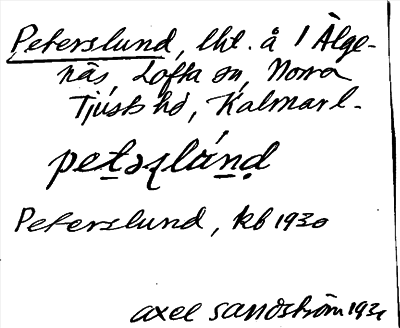 Peterslund, lht. å 1 Älge-
näs, Lofta sn, Norra
Tjusts hd, Kalmar l.
Peterslund, kb 1930
Axel Sandström 193